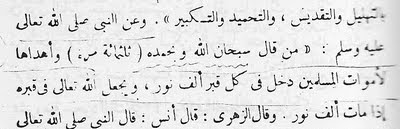 بالتهليل والتقديس ، والتحميد والتكبير » . وعن النبي صلى الله تعالى
عليه وسلم : « من قال سبحان الله وبحمده ( ثلثمائة مرة ) وأهداها
لأموات المسلمين دخل فى كل قبر ألف نور ، ويجعل الله تعالى فى قبره
إذا مات ألف نور . وقال الزهرى : قال أنس : قال النبي صلى الله تعالى